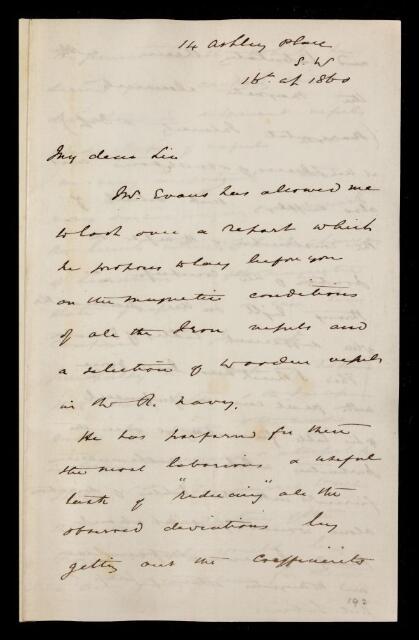 14 Ashley Place
S.W
16th ap 1860
My dear Sir
Mr. Evans has allowed me
to look over a report which
he proposes to lay before you
on the magnetic conditions
of all the Iron vessels and
a selection of wooden vessels
in the R. Navy.
He has performed for them
the most laborious & useful
task of "reducing" all the
observed deviations by
getting out the coefficients